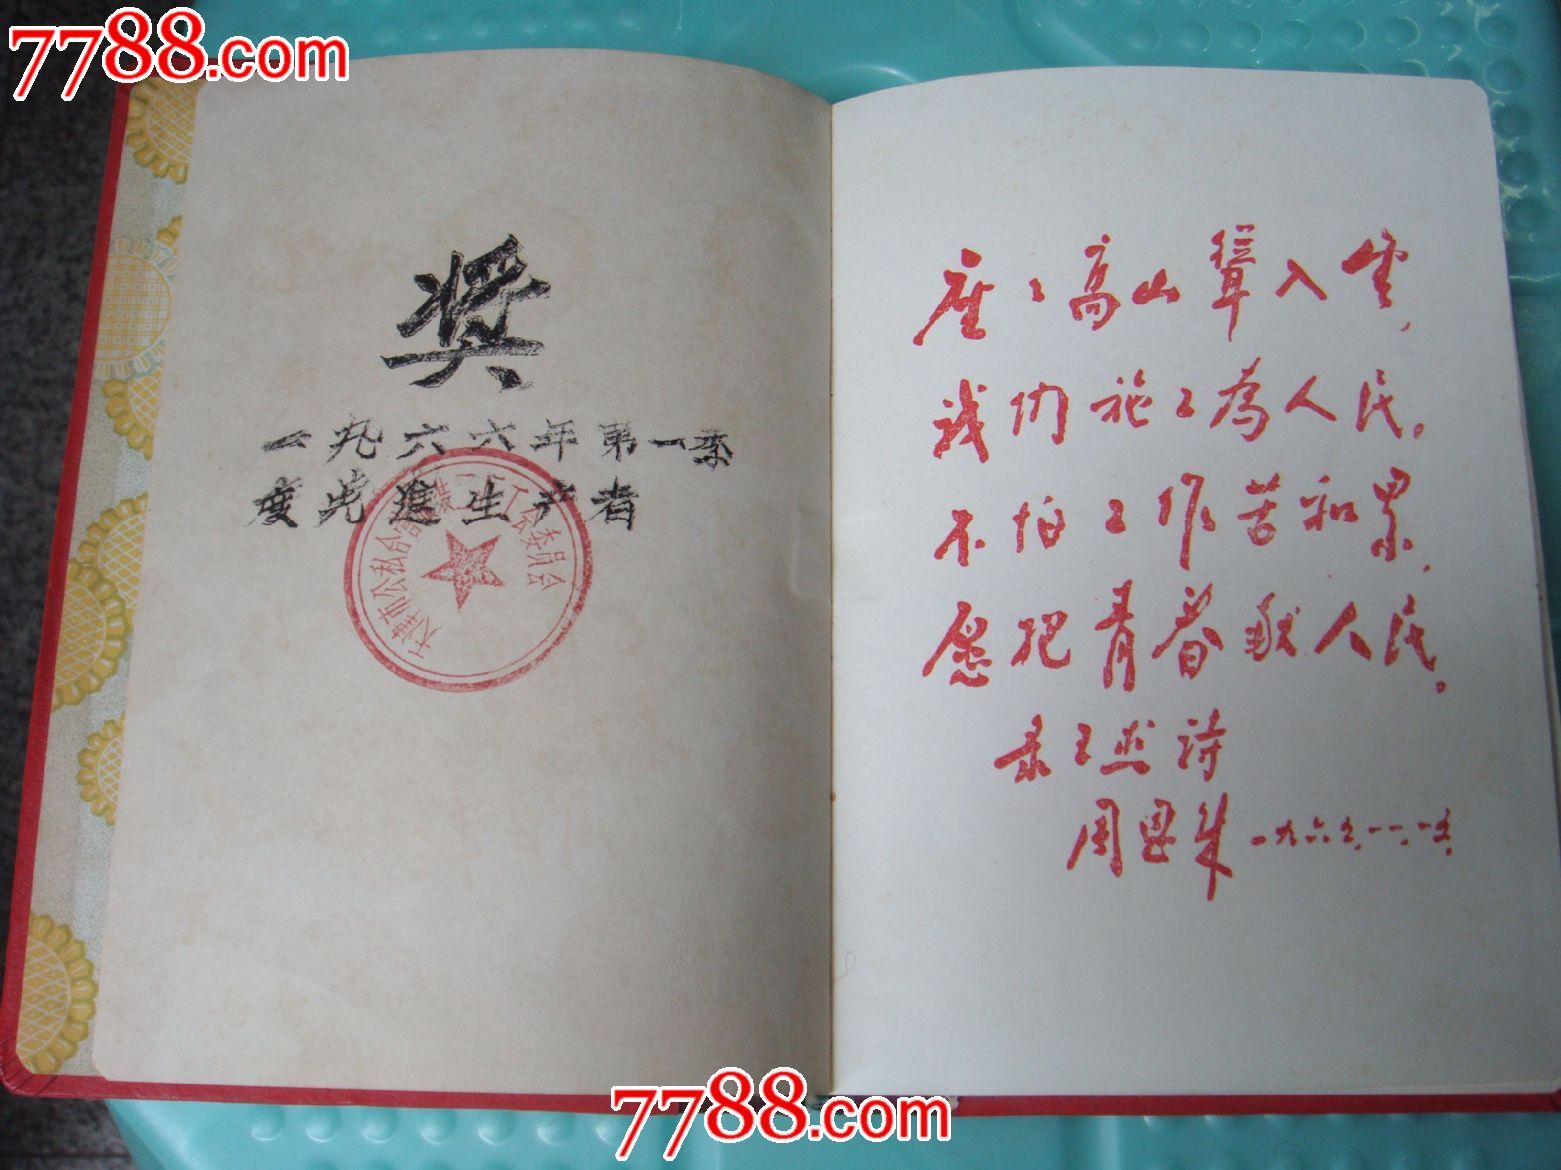 7788.com
奖
一九六六年第一季
度先進生产者
天津市公私合营
工会委员会
座々高山聳入雲，
我们施工为人民。
不怕工作苦和累，
愿把青春献人民。
录王杰诗
周恩来 一九六五．一一．一五．
7788.com